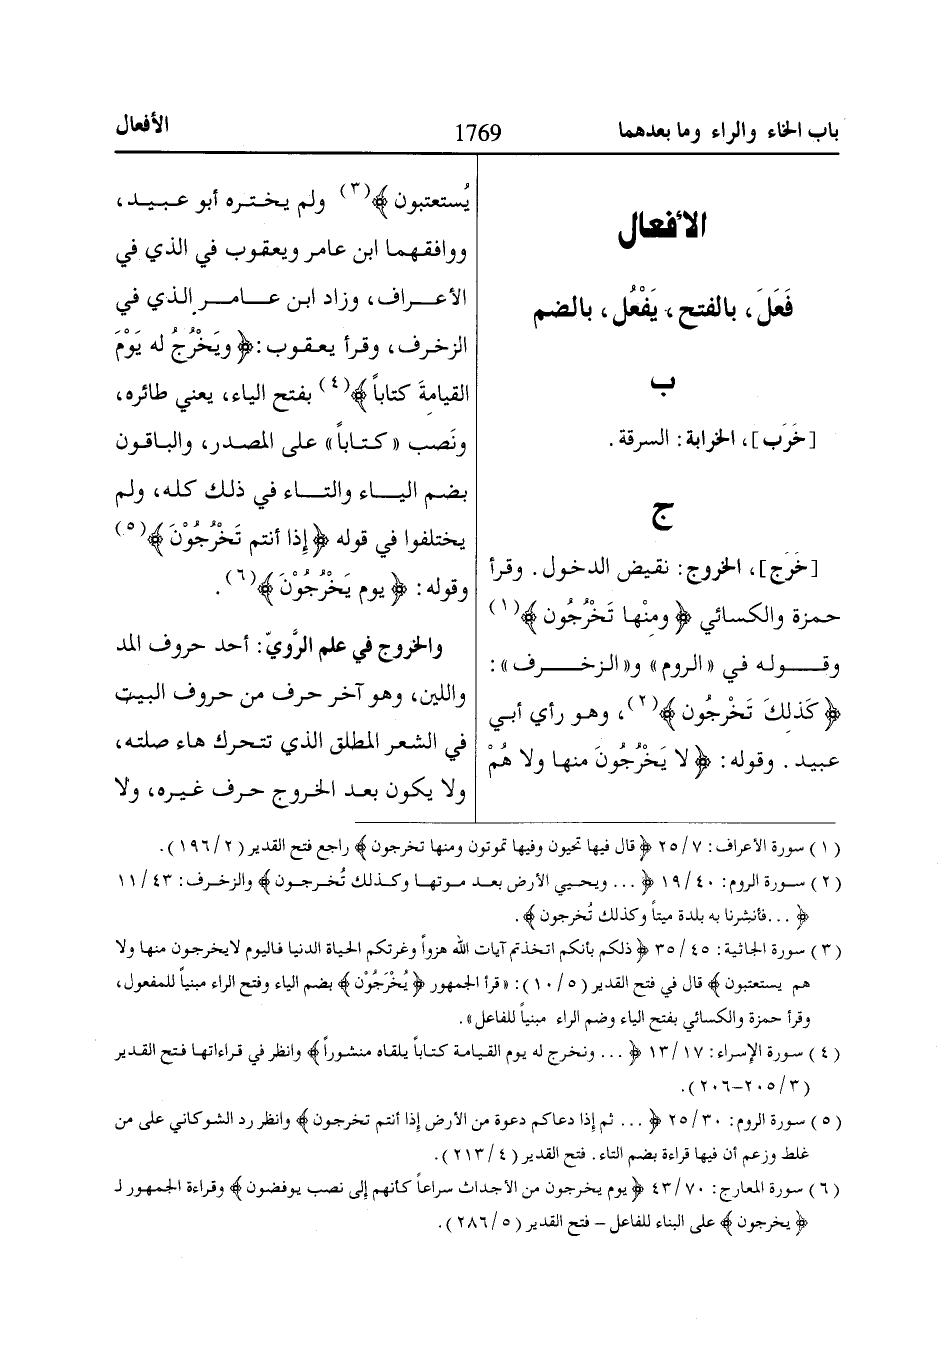 باب الخاء والراء وما بعدهما
1769
الأفعال
الأفعال
فَعَلَ، بالفتح، يَفْعُل، بالضم
ب
[خَرَب]، الخرابة: السرقة.
ج
[خَرَج]، الخروج: نقيض الدخول. وقرأ
حمزة والكسائي ﴿ ومنْها تَخْرُجُون ﴾(١)
وقوله في «الروم» و«الزخرف»:
﴿ كَذلِكَ تَخْرجُون ﴾(٢)، وهو رأي أبي
عبيد. وقوله: ﴿ لا يَخْرُجُونَ منها ولا هُمْ
يُستعتبون ﴾(٣) ولم يختره أبو عبيد،
ووافقهما ابن عامر ويعقوب في الذي في
الأعراف، وزاد ابن عامر الذي في
الزخرف، وقرأ يعقوب: ﴿ ويَخْرُجُ له يَوْمَ
القيامةَ كتاباً ﴾(٤) بفتح الياء، يعني طائره،
ونَصب «كتاباً» على المصدر، والباقون
بضم الياء والتاء في ذلك كله، ولم
يختلفوا في قوله ﴿ إذا أنتم تَخْرُجُوْنَ ﴾(٥)
وقوله: ﴿ يوم يَخْرُجُوْنَ ﴾(٦).
والخروج في علم الرَّويّ: أحد حروف المد
واللين، وهو آخر حرف من حروف البيت
في الشعر المطلق الذي تتحرك هاء صلته،
ولا يكون بعد الخروج حرف غيره، ولا
(١) سورة الأعراف: ٢٥/٧ ﴿ قال فيها تحيون وفيها تموتون ومنها تخرجون ﴾ راجع فتح القدير (١٩٦/٢).
(٢) سورة الروم: ١٩/٤٠ ﴿ ... ويحيي الأرض بعد موتها وكذلك تُخرجون ﴾ والزخرف: ١١/٤٣
﴿ ...فأنشرنا به بلدة ميتاً وكذلك تُخرجون ﴾.
(٣) سورة الجاثية: ٣٥/٤٥ ﴿ ذلكم بأنكم اتخذتم آيات الله هزواً وغرتكم الحياة الدنيا فاليوم لا يخرجون منها ولا
هم يستعتبون ﴾ قال في فتح القدير (١٠/٥): «قرأ الجمهور ﴿ يُخْرَجُوْن ﴾ بضم الياء وفتح الراء مبنياً للمفعول،
وقرأ حمزة والكسائي بفتح الياء وضم الراء مبنياً للفاعل».
(٤) سورة الإسراء: ١٣/١٧ ﴿ ... ونخرج له يوم القيامة كتاباً يلقاه منشوراً ﴾ وانظر في قراءاتها فتح القدير
(٢٠٥/٣–٢٠٦).
(٥) سورة الروم: ٢٥/٣٠ ﴿ ... ثم إذا دعاكم دعوة من الأرض إذا أنتم تخرجون ﴾ وانظر رد الشوكاني على من
غلط وزعم أن فيها قراءة بضم التاء. فتح القدير (٢١٣/٤).
(٦) سورة المعارج: ٤٣/٧٠ ﴿ يوم يخرجون من الأجداث سراعاً كأنهم إلى نصب يوفضون ﴾ وقراءة الجمهور لـ
﴿ يخرجون ﴾ على البناء للفاعل – فتح القدير (٢٨٦/٥).